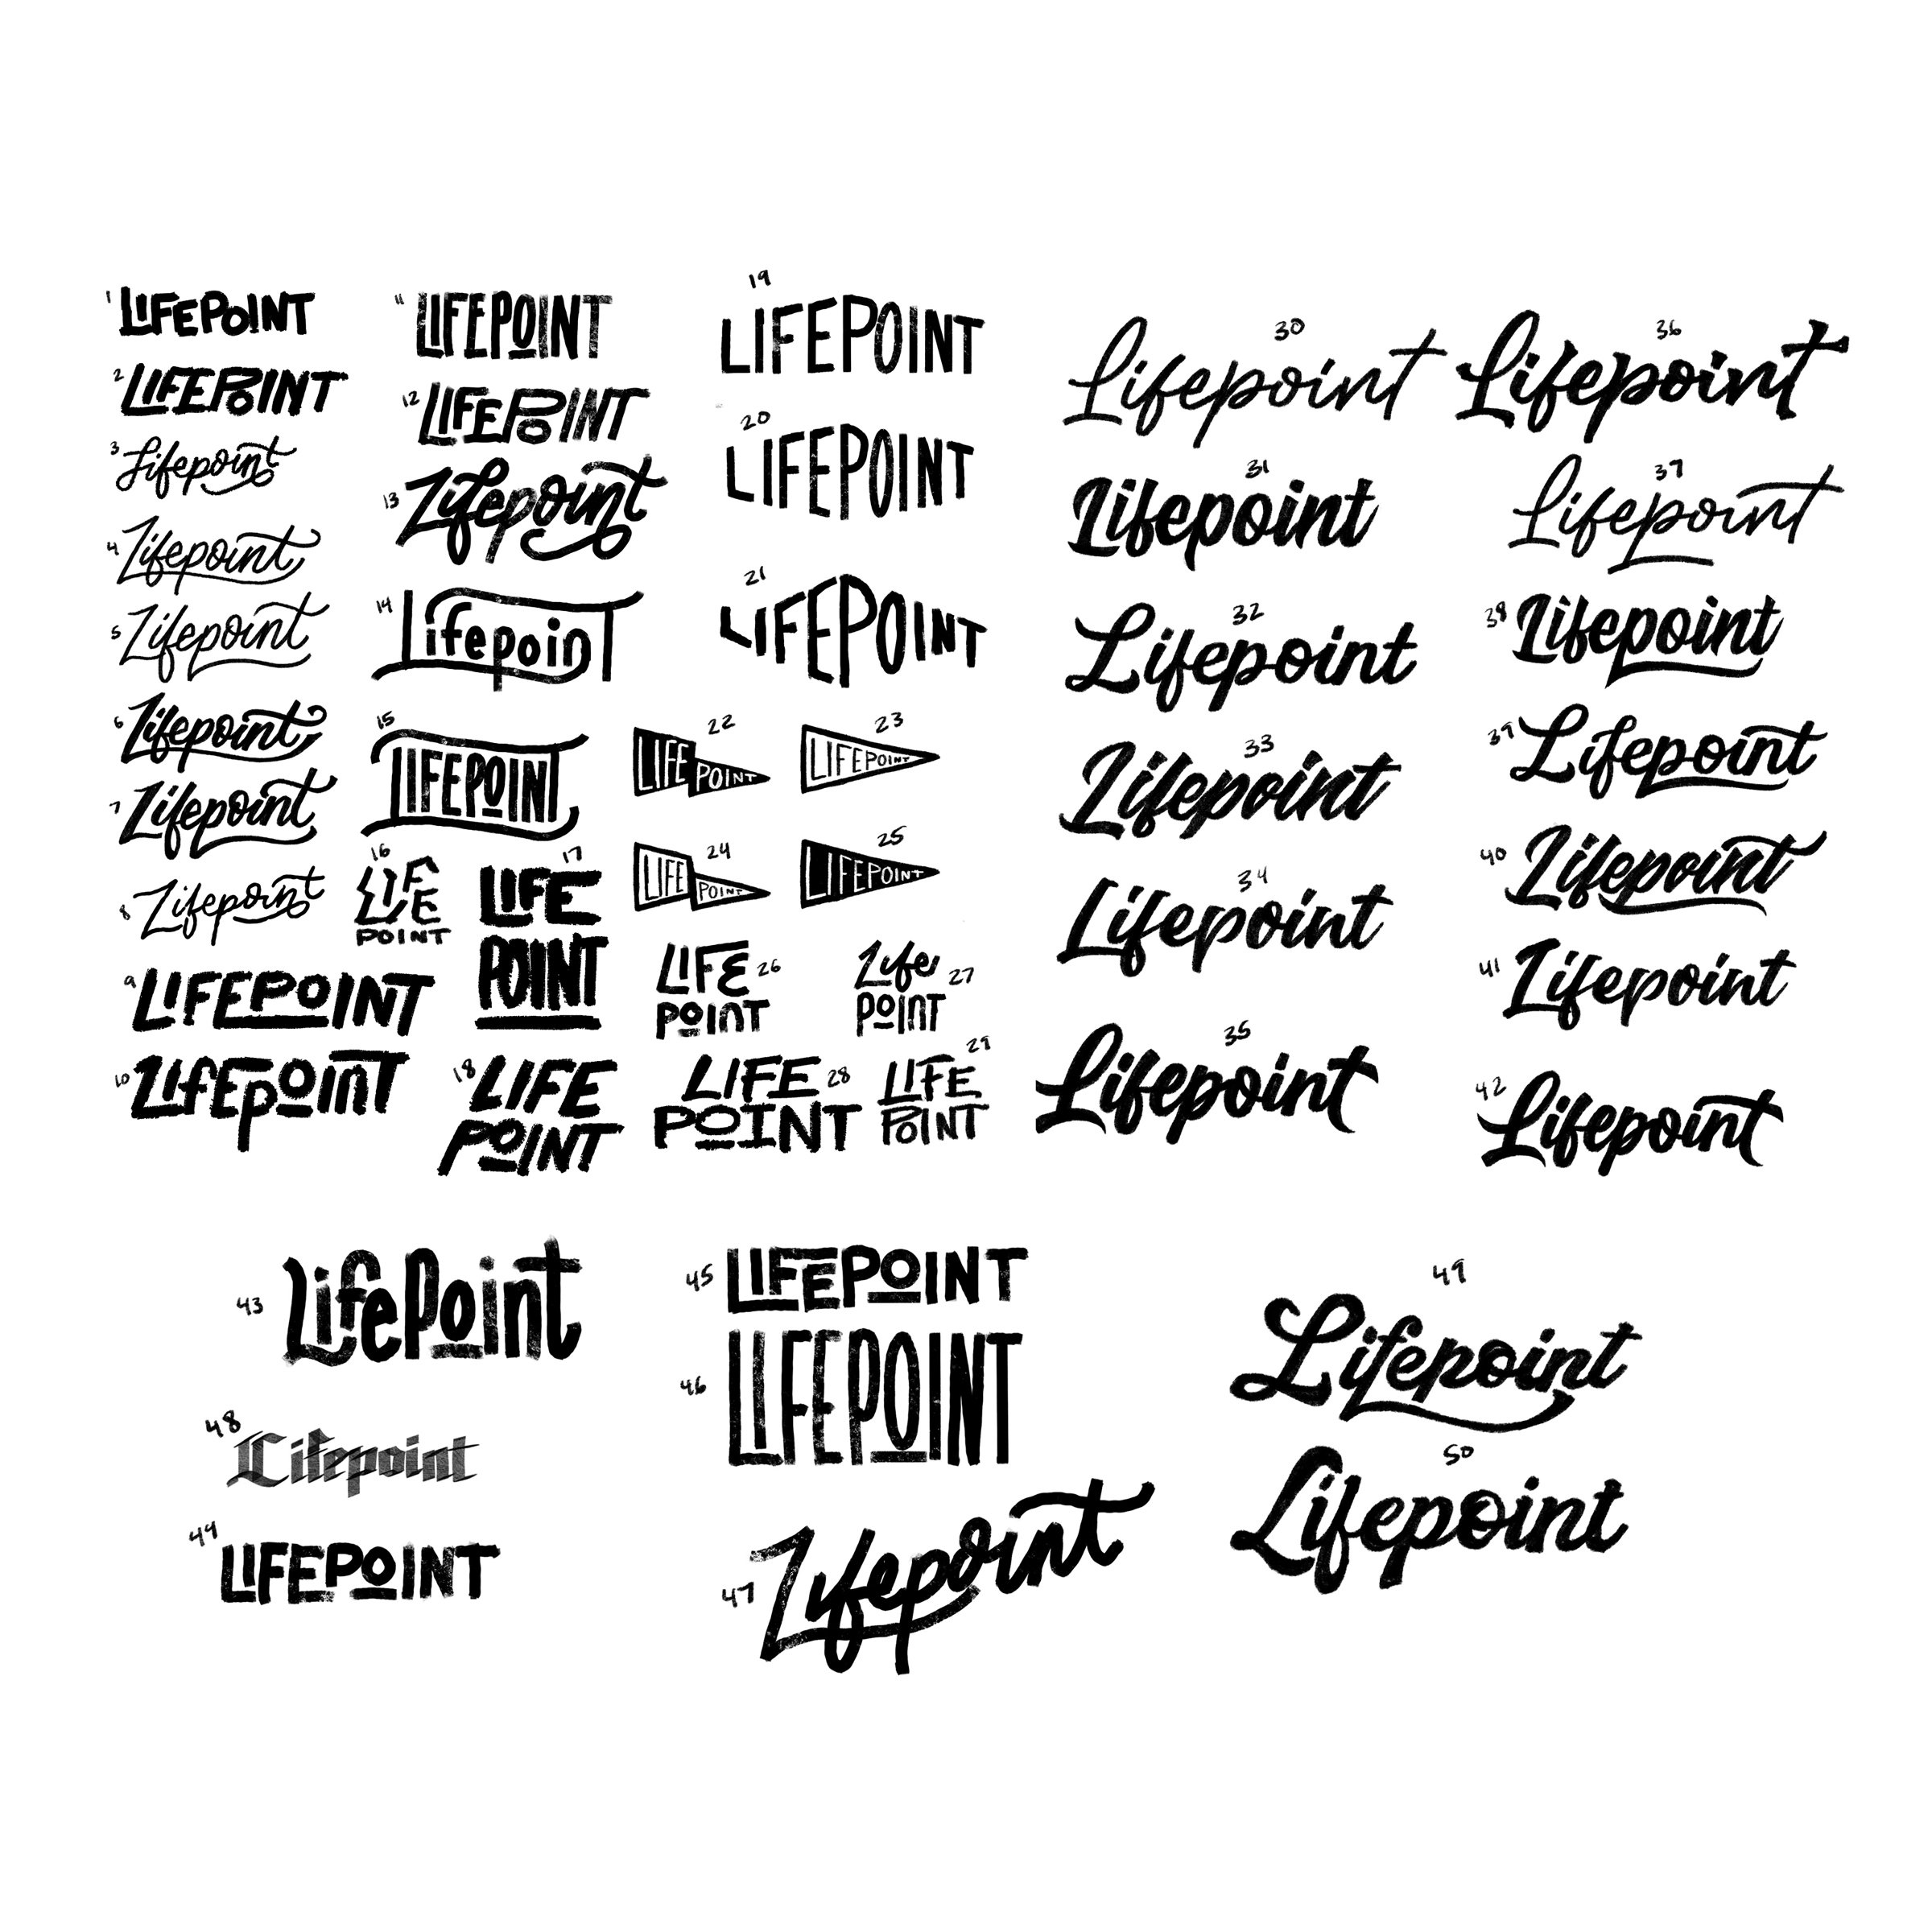 1
LIFEPOINT
2
LIFEPOINT
3
Lifepoint
4
Lifepoint
5
Lifepoint
6
Lifepoint
7
Lifepoint
8
Lifepoint
9
LIFEPOINT
10
LIfEpoint
11
LIFEPOINT
12
LIFEPOINT
13
Lifepoint
14
Lifepoint
15
LIFEPOINT
16
LIFE
POINT
17
LIFE
POINT
18
LIFE
POINT
19
LIFEPOINT
20
LIFEPOINT
21
LIFEPOINT
22
LIFE
POINT
23
LIFEPOINT
24
LIFE
POINT
25
LIFEPOINT
26
LIFE
POINT
27
Life
POINT
28
LIFE
POINT
29
LIFE
POINT
30
Lifepoint
31
Lifepoint
32
Lifepoint
33
Lifepoint
34
Lifepoint
35
Lifepoint
36
Lifepoint
37
Lifepoint
38
Lifepoint
39
Lifepoint
40
Lifepoint
41
Lifepoint
42
Lifepoint
43
LifePoint
48
Lifepoint
49
LIFEPOINT
45
LIFEPOINT
46
LIFEPOINT
47
Lifepoint
49
Lifepoint
50
Lifepoint